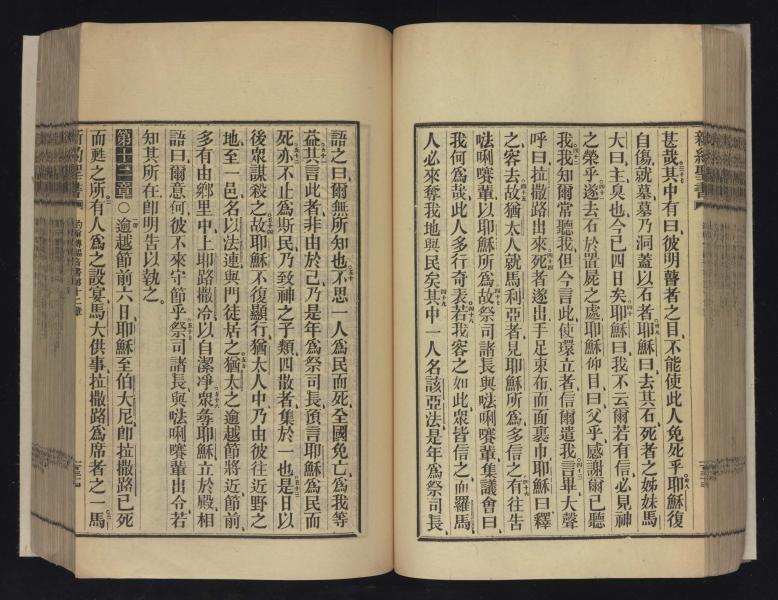 新約聖書
甚哉其中有曰彼明瞽者之目不能使此人免死乎耶穌復
自傷就墓墓乃洞蓋以石者耶穌曰去其石死者之姊妹馬
大曰主臭也今已四日矣耶穌曰我不云爾若有信必見神
之榮乎遂去石於置屍之處耶穌仰目曰父乎感謝爾已聽
我我知爾常聽我但今言此使環立者信爾遣我言畢大聲
呼曰拉撒路出來死者遂出手足束布面裹巾耶穌曰釋
之容去故猶太人就馬利亞者見耶穌所爲多信之有往告
𠵽唎㘔輩以耶穌所爲故祭司諸長與𠵽唎㘔輩集議會曰
我何爲哉此人多行奇表若我容之如此衆皆信之而羅馬
人必來奪我地與民矣其中一人名該亞法是年爲祭司長
語之曰爾無所知也不思一人爲民而死全國免亡爲我等
益其言此者非由於己乃是年爲祭司長預言耶穌爲民而
死亦不止爲斯民乃致神之子類四散者集於一也是日以
後衆謀殺之故耶穌不復顯行猶太人中乃由彼往近野之
地至一邑名以法連與門徒居之猶太之逾越節將近節前
多有由鄉里中上耶路撒冷以自潔淨衆尋耶穌立於殿相
語曰爾意何彼不來守節乎祭司諸長與𠵽唎㘔輩出令若
知其所在卽明告以執之
第十二章○逾越節前六日耶穌至伯大尼卽拉撒路已死
而甦之所有人爲之設宴馬大供事拉撒路爲席者之一馬
新約聖書